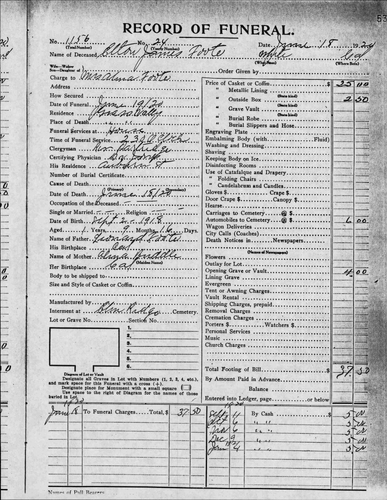 RECORD OF FUNERAL.
No. 1156 24 Date June 18 1920
(Total Number) (Yearly Number)
Name of Deceased Elton James Foote White Cal
(What Race) (Where Born)
Charge to Mrs Alma Foote
Order Given by
Address
How Secured
Date of Funeral June 19/20
Residence Grass Valley
Place of Death
Funeral Services at Home
Time of Service 2:30 O'Clock
Clergyman
Certifying Physician
His Residence Auburn St
Number of Burial Certificate
Cause of Death
(Primary)
Date of Death June 18/20
Occupation of the Deceased
Single or Married Religion
Date of Birth Sept 2 - 1918
Aged 1 Years, 9 Months, 16 Days
Name of Father Foote
His Birthplace Cal
Name of Mother
(Maiden Name)
Her Birthplace Cal
Body to be shipped to
Size and Style of Casket or Coffin
Manufactured by
Interment at Elm Ridge Cemetery.
Lot or Grave No. Section No.
Diagram of Lot or Vault
Designate Graves in Lot with Numbers (1, 2, 3, 4, etc.), and mark space for this Funeral with a cross (+).
Designate place for Monument with a small square
Use the space to right of Diagram for the names of those buried in Lot.
June 18 To Funeral Charges, Total $ 37.50
Names of Pall Bearers
Price of Casket or Coffin $ 25.00
" Metallic Lining
" Outside Box 2.50
" Grave Vault
" Burial Robe
" Burial Slippers and Hose
Engraving Plate
Embalming Body (with Fluid)
Washing and Dressing
Shaving
Keeping Body on Ice
Disinfecting Rooms
Use of Catafalque and Drapery
" Folding Chairs
" Candelabrum and Candles
Gloves $ Crape $
Door Crape $ Canopy $
Hearse
Carriages to Cemetery @ $
Automobiles to Cemetery @ $ 6.00
Wagon Deliveries
City Calls (Coaches)
Death Notices in Newspapers
(Names of Newspapers)
Flowers
Outlay for Lot
Opening Grave or Vault 4.00
Lining Grave
Evergreen
Tent or Awning Charges
Vault Rental
Shipping Charges, prepaid
Removal Charges
Cremation Charges
Porters $ Watchers $
Personal Services
Music
Church Charges
Total Footing of Bill $ 37.50
By Amount Paid in Advance
Balance
Entered into Ledger, page or below
Sept 4 By Cash $ 5.00
Oct 6 " " 5.00
" " 5.00
Dec 9 " " 5.00
" " 5.00